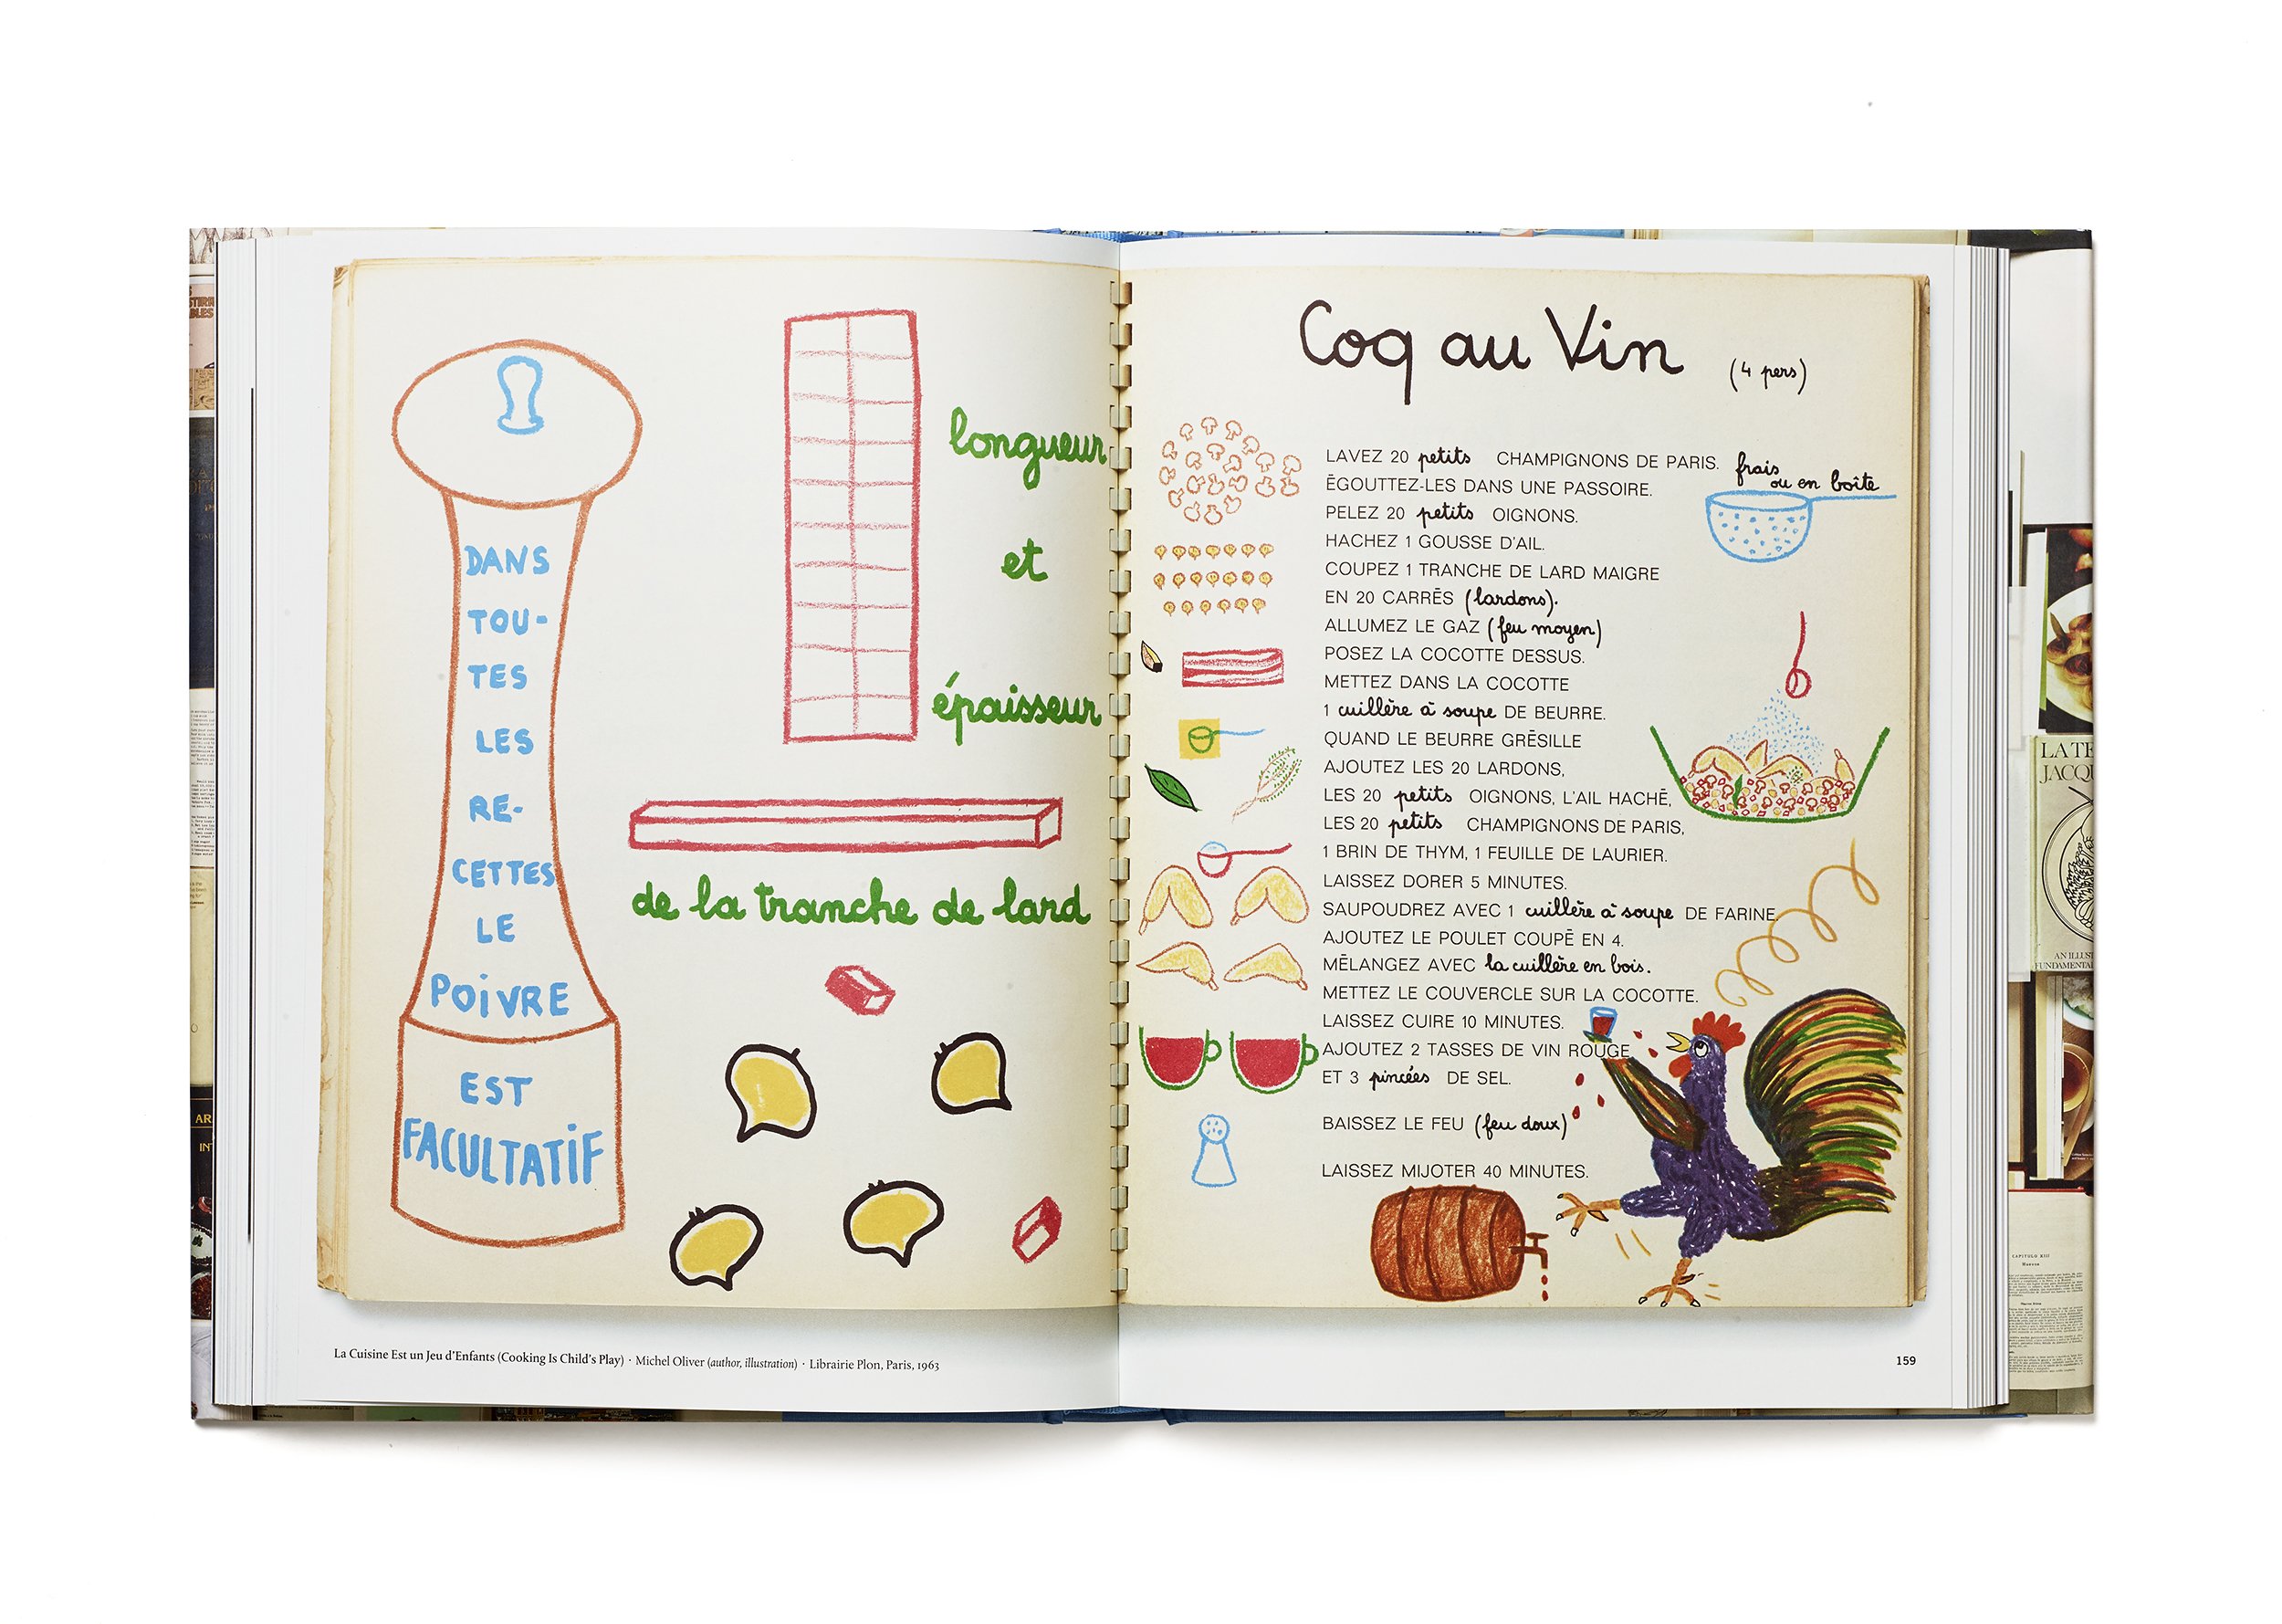 DANS
TOU-
TES
LES
RE-
CETTES
LE
POiVRE
EST
FACULTATiF
longueur
et
épaisseur
de la tranche de lard
La Cuisine Est un Jeu d'Enfants (Cooking Is Child's Play) · Michel Oliver (author, illustration) · Librairie Plon, Paris, 1963
Coq au Vin (4 pers)
LAVEZ 20 petits CHAMPIGNONS DE PARIS. frais
ou en boîte
ÉGOUTTEZ-LES DANS UNE PASSOIRE.
PELEZ 20 petits OIGNONS.
HACHEZ 1 GOUSSE D'AIL.
COUPEZ 1 TRANCHE DE LARD MAIGRE
EN 20 CARRÉS (lardons).
ALLUMEZ LE GAZ (feu moyen)
POSEZ LA COCOTTE DESSUS.
METTEZ DANS LA COCOTTE
1 cuillère à soupe DE BEURRE.
QUAND LE BEURRE GRÉSILLE
AJOUTEZ LES 20 LARDONS,
LES 20 petits OIGNONS, L'AIL HACHÉ,
LES 20 petits CHAMPIGNONS DE PARIS,
1 BRIN DE THYM, 1 FEUILLE DE LAURIER.
LAISSEZ DORER 5 MINUTES.
SAUPOUDREZ AVEC 1 cuillère à soupe DE FARINE.
AJOUTEZ LE POULET COUPÉ EN 4.
MÉLANGEZ AVEC la cuillère en bois.
METTEZ LE COUVERCLE SUR LA COCOTTE.
LAISSEZ CUIRE 10 MINUTES.
AJOUTEZ 2 TASSES DE VIN ROUGE
ET 3 pincées DE SEL.
BAISSEZ LE FEU (feu doux)
LAISSEZ MIJOTER 40 MINUTES.
159
LA TE
JACQU
AN ILLUS
FUNDAMENTA
CAPITULO XIII